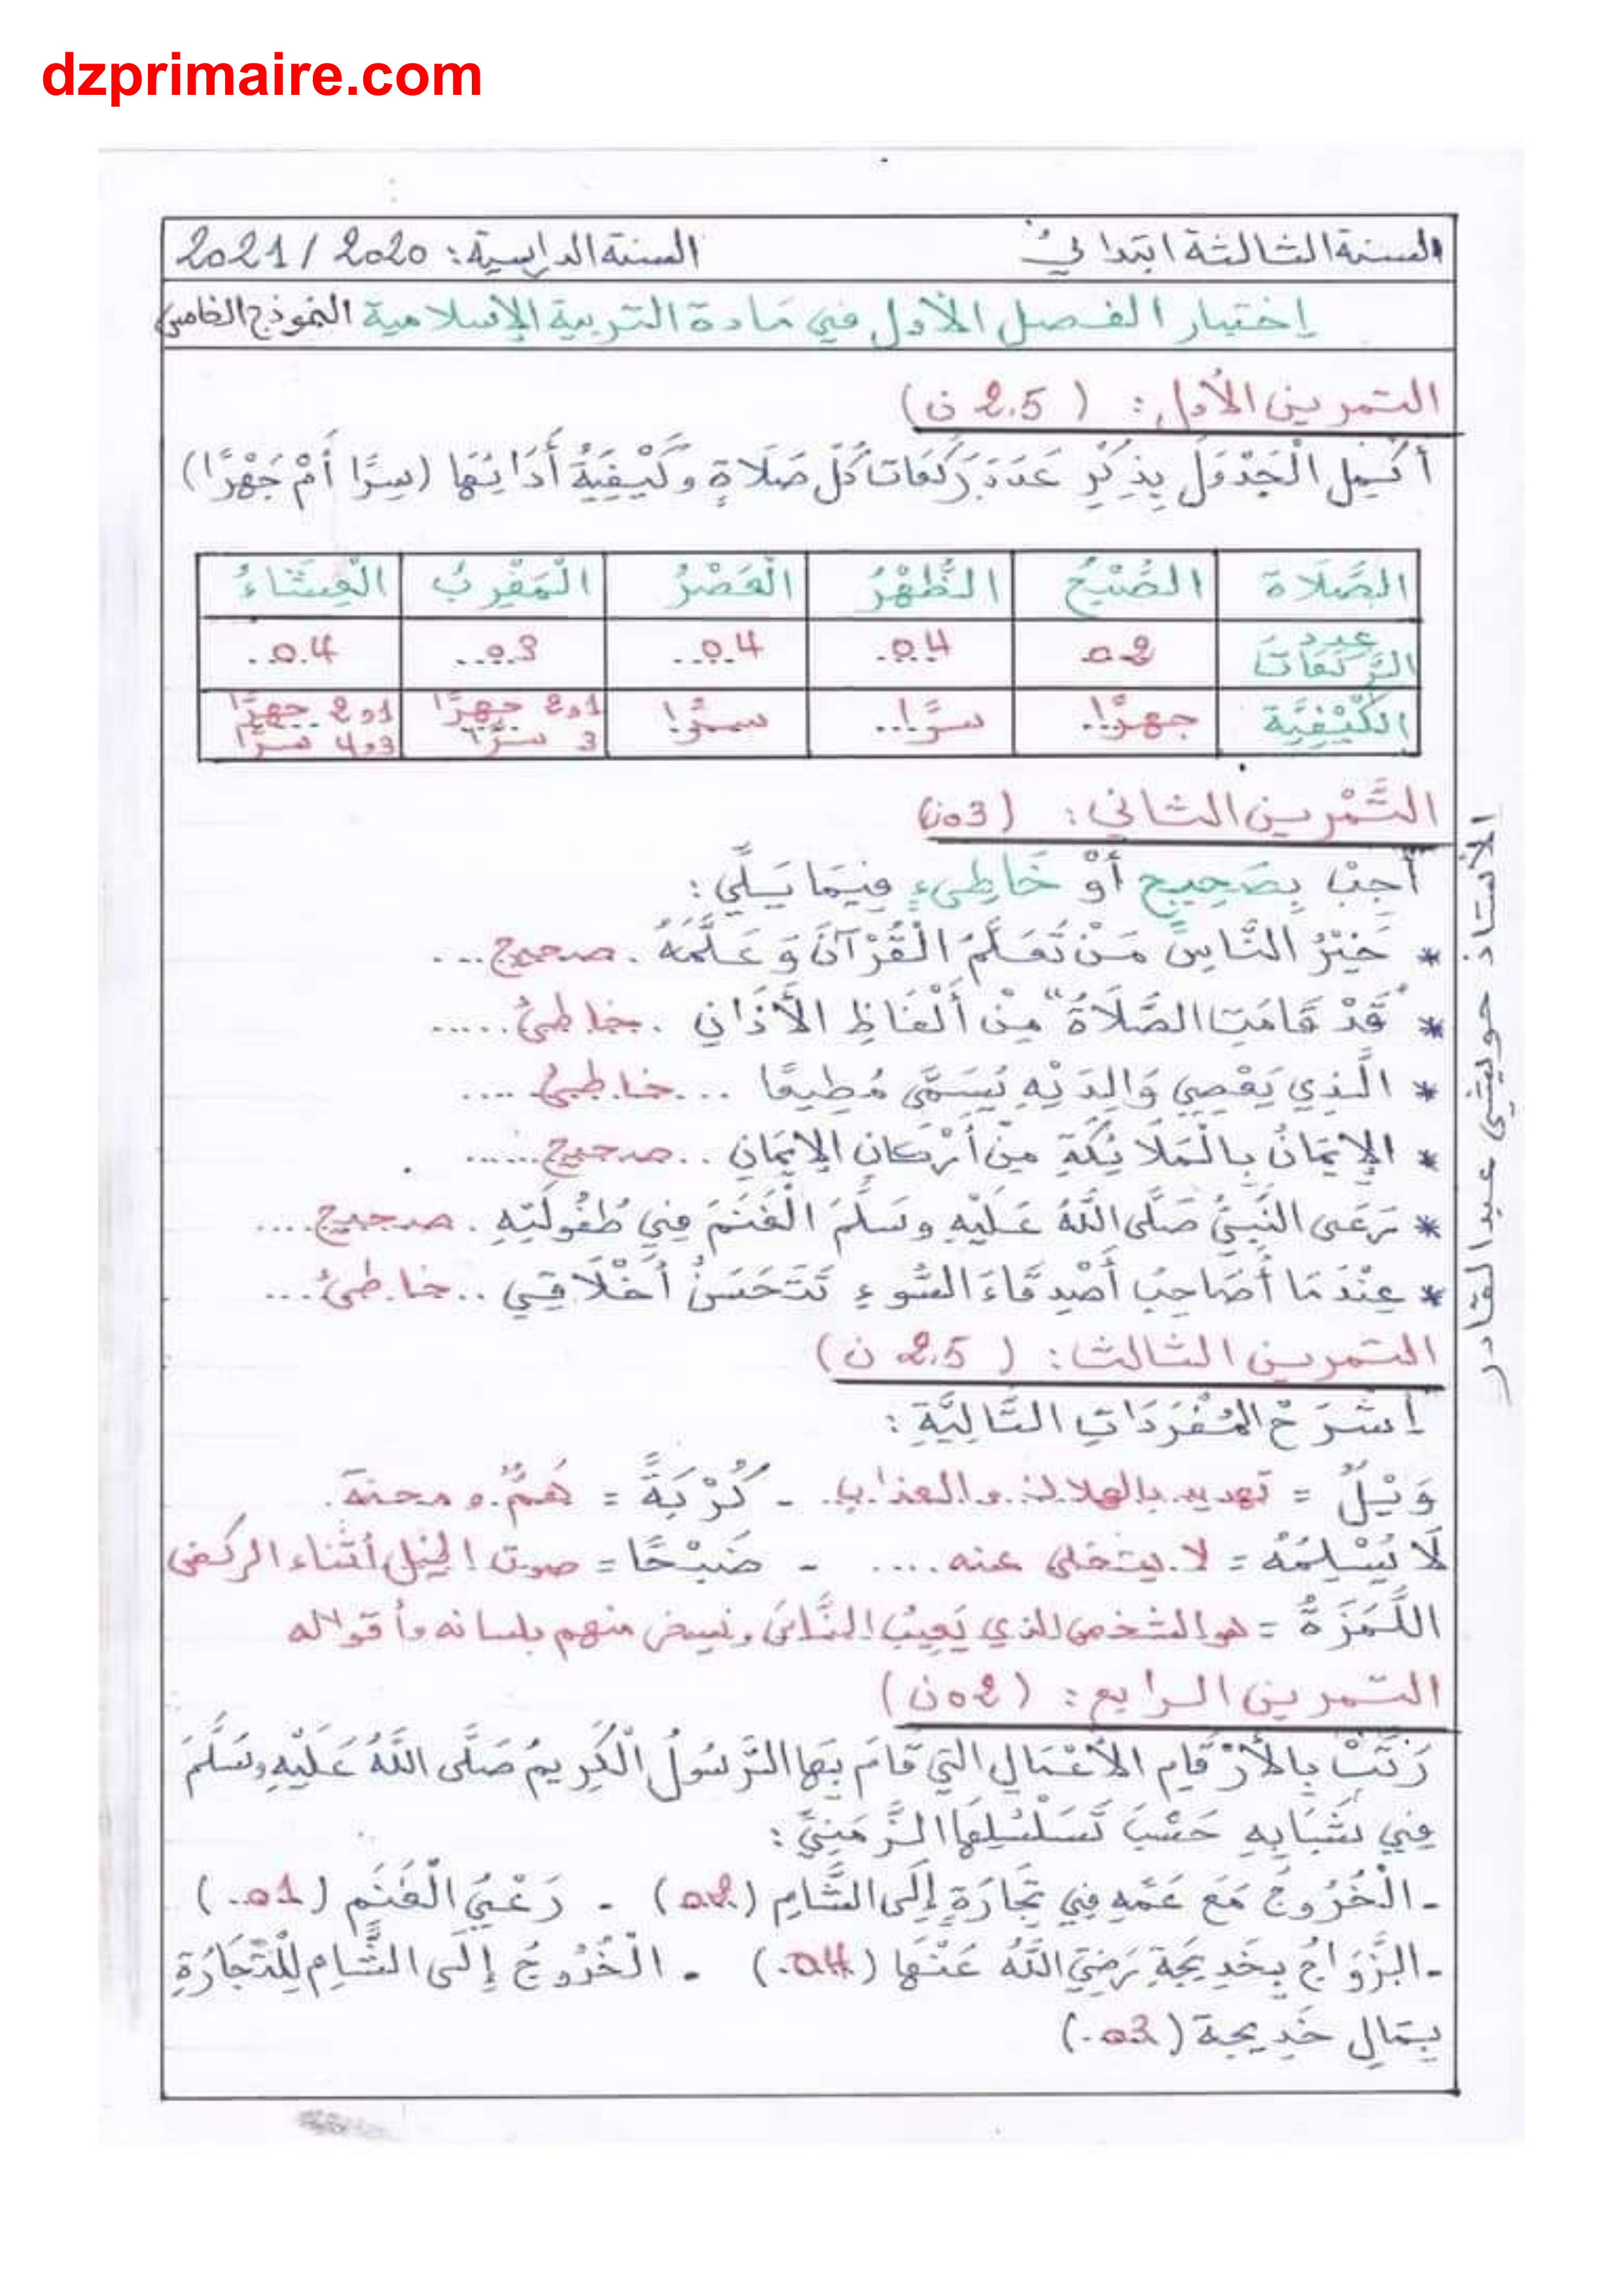 dzprimaire.com
السنة الثالثة ابتدائي السنة الدراسية: 2020 / 2021
إختبار الفصل الأول في مادة التربية الإسلامية النموذج الخامس
التمرين الأول: ( 2.5 ن)
أَكْمِلِ الْجَدْوَلَ بِذِكْرِ عَدَدَ رَكَعَاتِ كُلِّ صَلَاةٍ وَكَيْفِيَّةُ أَدَائِهَا (سِرًّا أَمْ جَهْرًا)
الصَّلَاة الصُّبْحُ الظُّهْرُ الْعَصْرُ الْمَغْرِبُ الْعِشَاءُ
عدد الرَّكعَات 02 04 04 03 04
الكَيْفِيَّة جهرًا سرًّا سرًّا 1و2 جهرًا 3 سرًّا 1و2 جهرًا 3و4 سرًّا
التَّمْرين الثاني: (03ن)
أَجِبْ بِصَحِيحٍ أَوْ خَاطِىءٍ فِيمَا يَلِي:
* خَيْرُ النَّاسِ مَنْ تَعَلَّمَ الْقُرْآنَ وَ عَلَّمَهُ . صحيح...
* "قَدْ قَامَتِ الصَّلَاةُ" مِنْ أَلْفَاظِ الأَذَانِ . خاطئ.....
* الَّذِي يَعْصِي وَالِدَيْهِ يُسَمَّى مُطِيعًا ...خاطئ....
* الإِيمَانُ بِالْمَلَائِكَةِ مِنْ أَرْكَانِ الإِيمَانِ ..صحيح......
* رَعَى النَّبِيُّ صَلَّى اللَّهُ عَلَيْهِ وسَلَّمَ الْغَنَمَ فِي طُفُولَتِهِ . صحيح....
* عِنْدَمَا أُصَاحِبُ أَصْدِقَاءَ السُّوءِ تَتَحَسَنُ أَخْلَاقِي ..خاطئ...
التمرين الثالث: ( 2.5 ن)
إِشْرَحْ المُفْرَدَاتِ التَّالِيَّةِ :
وَيْلٌ = تهديد بالهلاك و العذاب. - كُرْبَةً = هَمٌّ و محنة.
لَا يُسْلِمُهُ = لا يتخلى عنه .... - ضَبْحًا = صوت الخيل أثناء الركض
اللُّمَزَةُ = هو الشخص الذي يَعِيبُ النَّاسَ ويسخر منهم بلسانه وأقواله
التمرين الرابع: (02ن)
رَتِّبْ بِالأَرْقَامِ الأَعْمَالِ التِي قَامَ بِهَا الرَّسُولُ الْكَرِيمُ صَلَّى اللَّهُ عَلَيْهِ وسَلَّمَ
فِي شَبَابِهِ حَسْبَ تَسَلْسُلِهَا الزَّمَنِيِّ :
- الْخُرُوجُ مَعَ عَمِّهِ فِي تِجَارَةٍ إِلَى الشَّامِ (02) - رَعْيُ الْغَنَمِ (01.)
- الزَّوَاجُ بِخَدِيجَةَ رَضِيَ اللَّهُ عَنْهَا (04.) - الْخُرُوجُ إِلَى الشَّامِ لِلْتِّجَارَةِ
بِمَالِ خَدِيجة (03.)
الأستاذ حوليتي عبد القادر